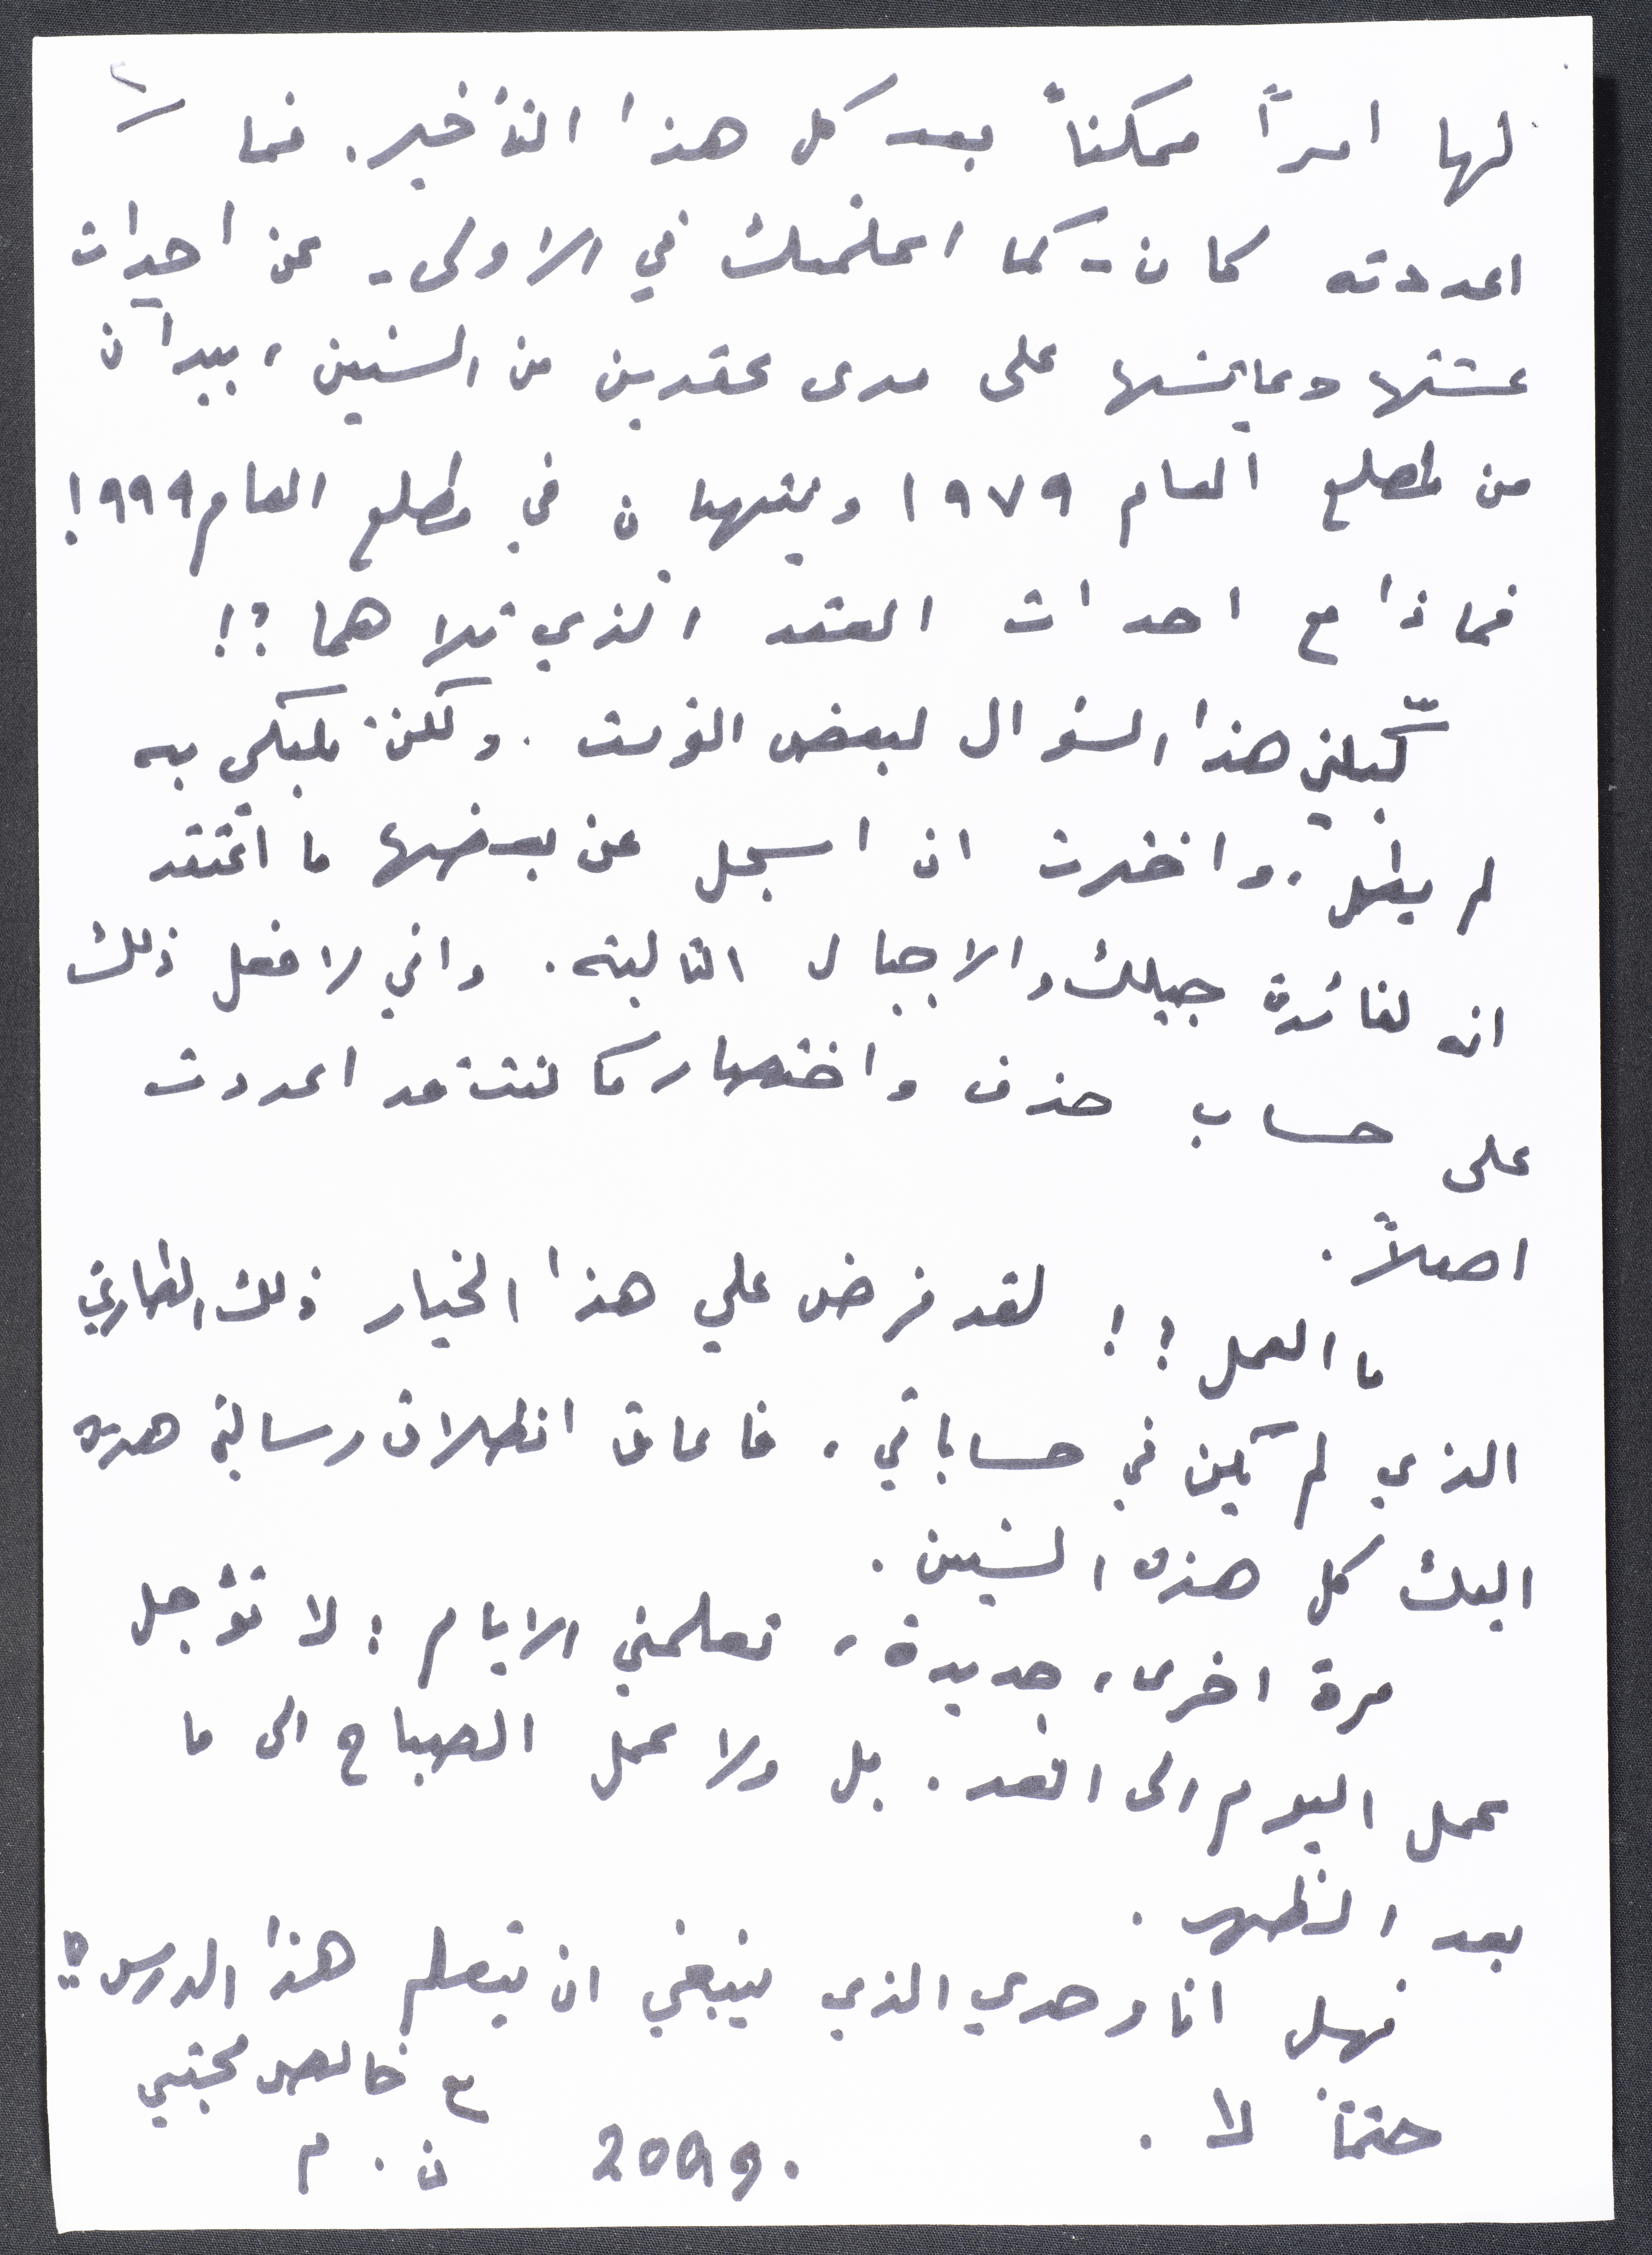 لها امراً ممكناً بعد كل هذا التأخير. فما
اعددته كان - كما اعلمتك في الاولى - عن احداث
عشتها وعايشتها على مدى عقدين من السنين، يبدآن
من مطلع العام ١٩٧٩ وينتهيان في مطلع العام ١٩٩٩!
فماذا مع احداث العقد الذي تلاهما ؟!
كبّلني هذا السؤال لبعض الوقت. ولكن تكبلي به
لم يطل. واخترت ان اسجل عن بعضها ما اعتقد
انه لفائدة جيلك والاجيال التالية. واني لافعل ذلك
على حساب حذف واختصار ما كنت قد اعددت
اصلاً.
ما العمل ؟! لقد فرض علي هذا الخيار ذلك الطارئ
الذي لم يكن في حساباتي، فاعاق انطلاق رسالتي هذه
اليك كل هذه السنين.
مرة اخرى، جديدة، تعلمني الايام: لا تؤجل
عمل اليوم الى الغد. بل ولا عمل الصباح الى ما
بعد الظهر.
فهل انا وحدي الذي ينبغي ان يتعلم هذا الدرس؟!
حتماً لا.
مع خالص محبتي
ن. م
2009.